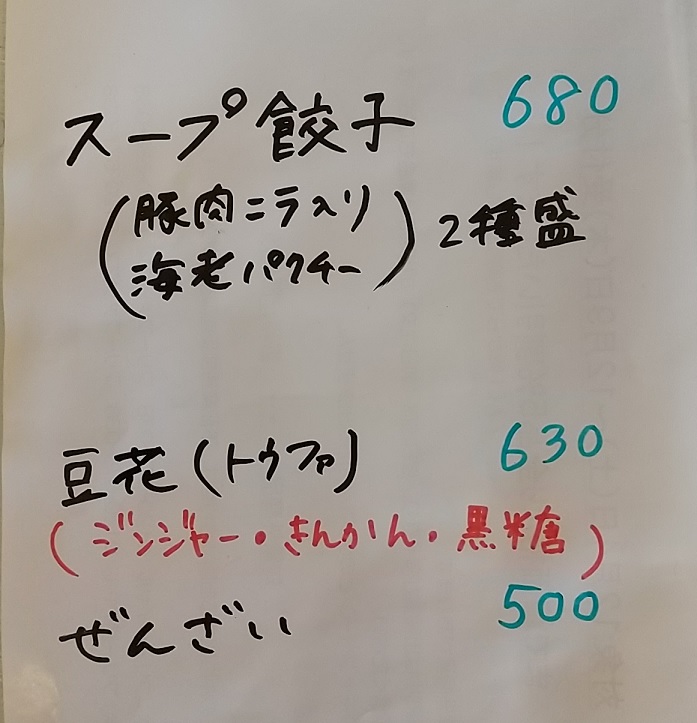 スープ餃子 680
(豚肉ニラ入り
海老パクチー) 2種盛
豆花(トウファ) 630
(ジンジャー・きんかん・黒糖)
ぜんざい 500